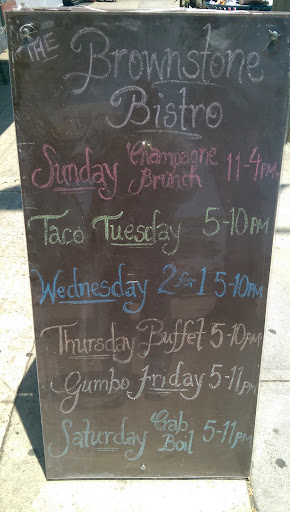 THE Brownstone
Bistro
Sunday Champagne Brunch 11-4PM
Taco Tuesday 5-10PM
Wednesday 2 for 1 5-10PM
Thursday Buffet 5-10PM
Gumbo Friday 5-11PM
Saturday Crab Boil 5-11PM